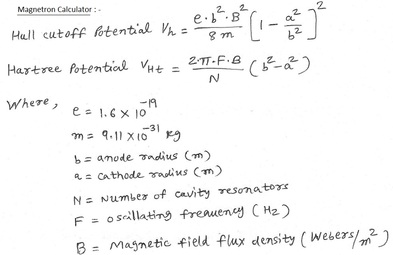 Magnetron Calculator :-
Hull cutoff Potential Vh = e·b²·B² / 8m [1 - a²/b²]²
Hartree Potential VHt = 2·π·F·B / N (b²-a²)
Where,
e = 1.6 × 10⁻¹⁹
m = 9.11 × 10⁻³¹ kg
b = anode radius (m)
a = cathode radius (m)
N = Number of cavity resonators
F = oscillating frequency (Hz)
B = Magnetic field flux density (Webers/m²)